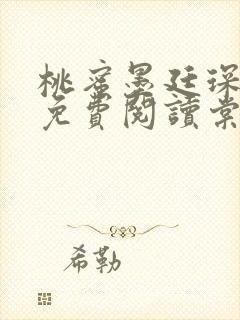 桃蜜墨廷深
免費閱讀棠
希勒